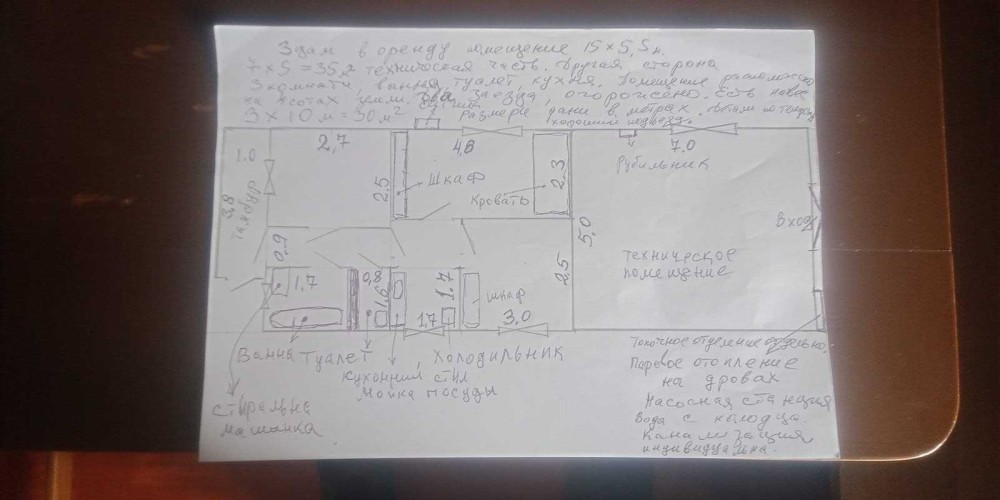 Здам в оренду помещение 15 x 5,5 м.
7 x 5 = 35 м2 техническая часть. Другая сторона
3 комнаты, ванна, туалет, кухня, Помещение расположено
на
заезда, огорожено. Есть навес
3 x 10 м = 30 м2
Размеры дани в метрах.
1.0
2,7
4,8
7.0
Рубильник
3,8
тамбур
2,5
Шкаф
Кровать
2.3
5,0
Вход
0,9
техническое
помещение
1,7
0,8
1,6
1.7
шкаф
2,5
1,7
3.0
Ванна туалет, Холодильник
Кухонний стіл
Мойка посуды
Стіральна
машинка
Топочное отделение отдельно,
Паровое отопление
на дровах
Насосная станция
Вода с колодца.
Канализация
индивидуальна.